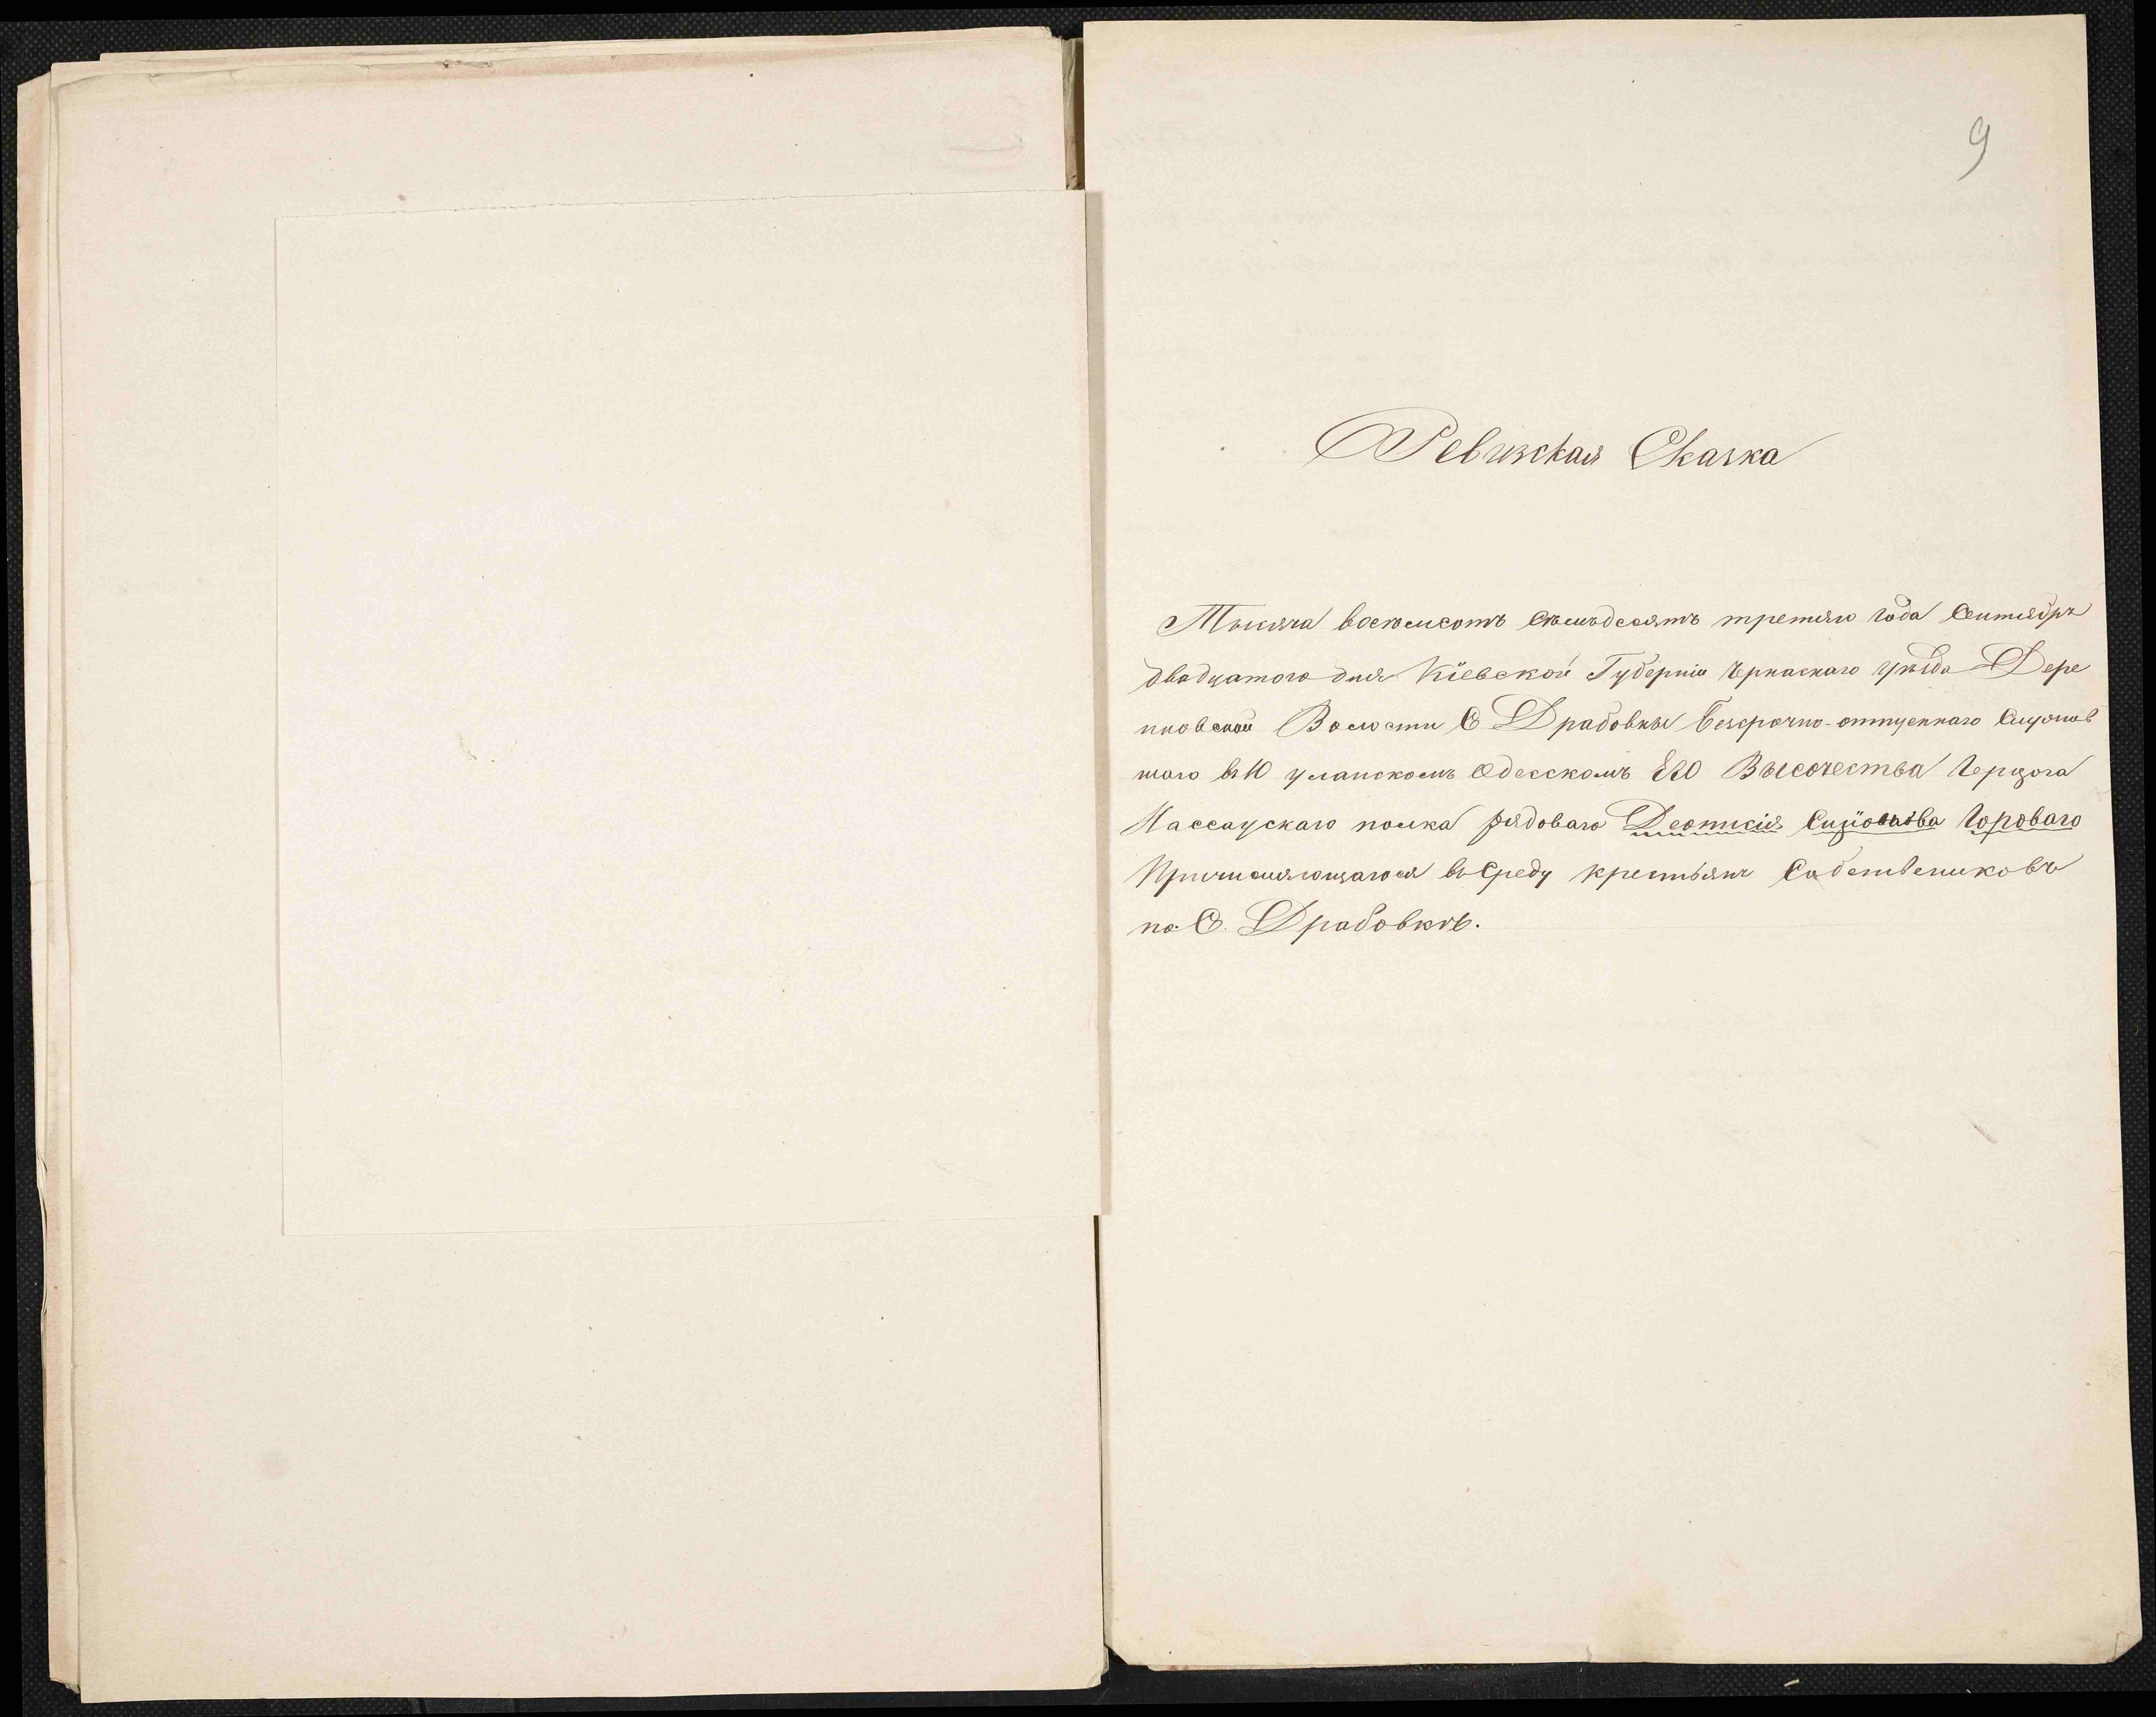 9
Ревизская Сказка
Тысяча восемсотъ семьдесятъ третяго года Сентябрь
двадцатого дня Кіевской Губерніи Черкаскаго уѣзда Дере
нковской Волости С Драбовки безсрочно-отпускнаго Служив
шаго въ 10 уланскомъ Одесскомъ Его Высочества Герцога
Нассаускаго полка рядоваго Гороваго
Причисляющагося въ Среду крестьянъ Собствениковъ
по С. Драбовкѣ.